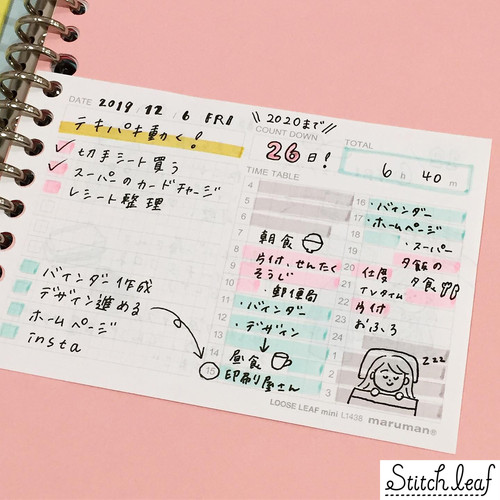 DATE 2019 / 12 / 6 FRI
\\ 2020まで //
COUNT DOWN
26日!
TOTAL
6 h 40 m
テキパキ動く!
切手シート買う
スーパーのカードチャージ
レシート整理
バインダー作成
デザイン進める
ホームページ
insta
TIME TABLE
4
5
6
7
朝食
8 片付、せんたく
9 そうじ
10 ・郵便局
11 ・バインダー
12 ・デザイン
↓
昼食
15 印刷屋さん
16 ・バインダー
17 ・ホームページ
18 ・スーパー
夕飯の
20 仕度 夕食
21 TVタイム
22 片付
おふろ
24
1
2
3
zzz
LOOSE LEAF mini L1438 maruman®
Stitch leaf